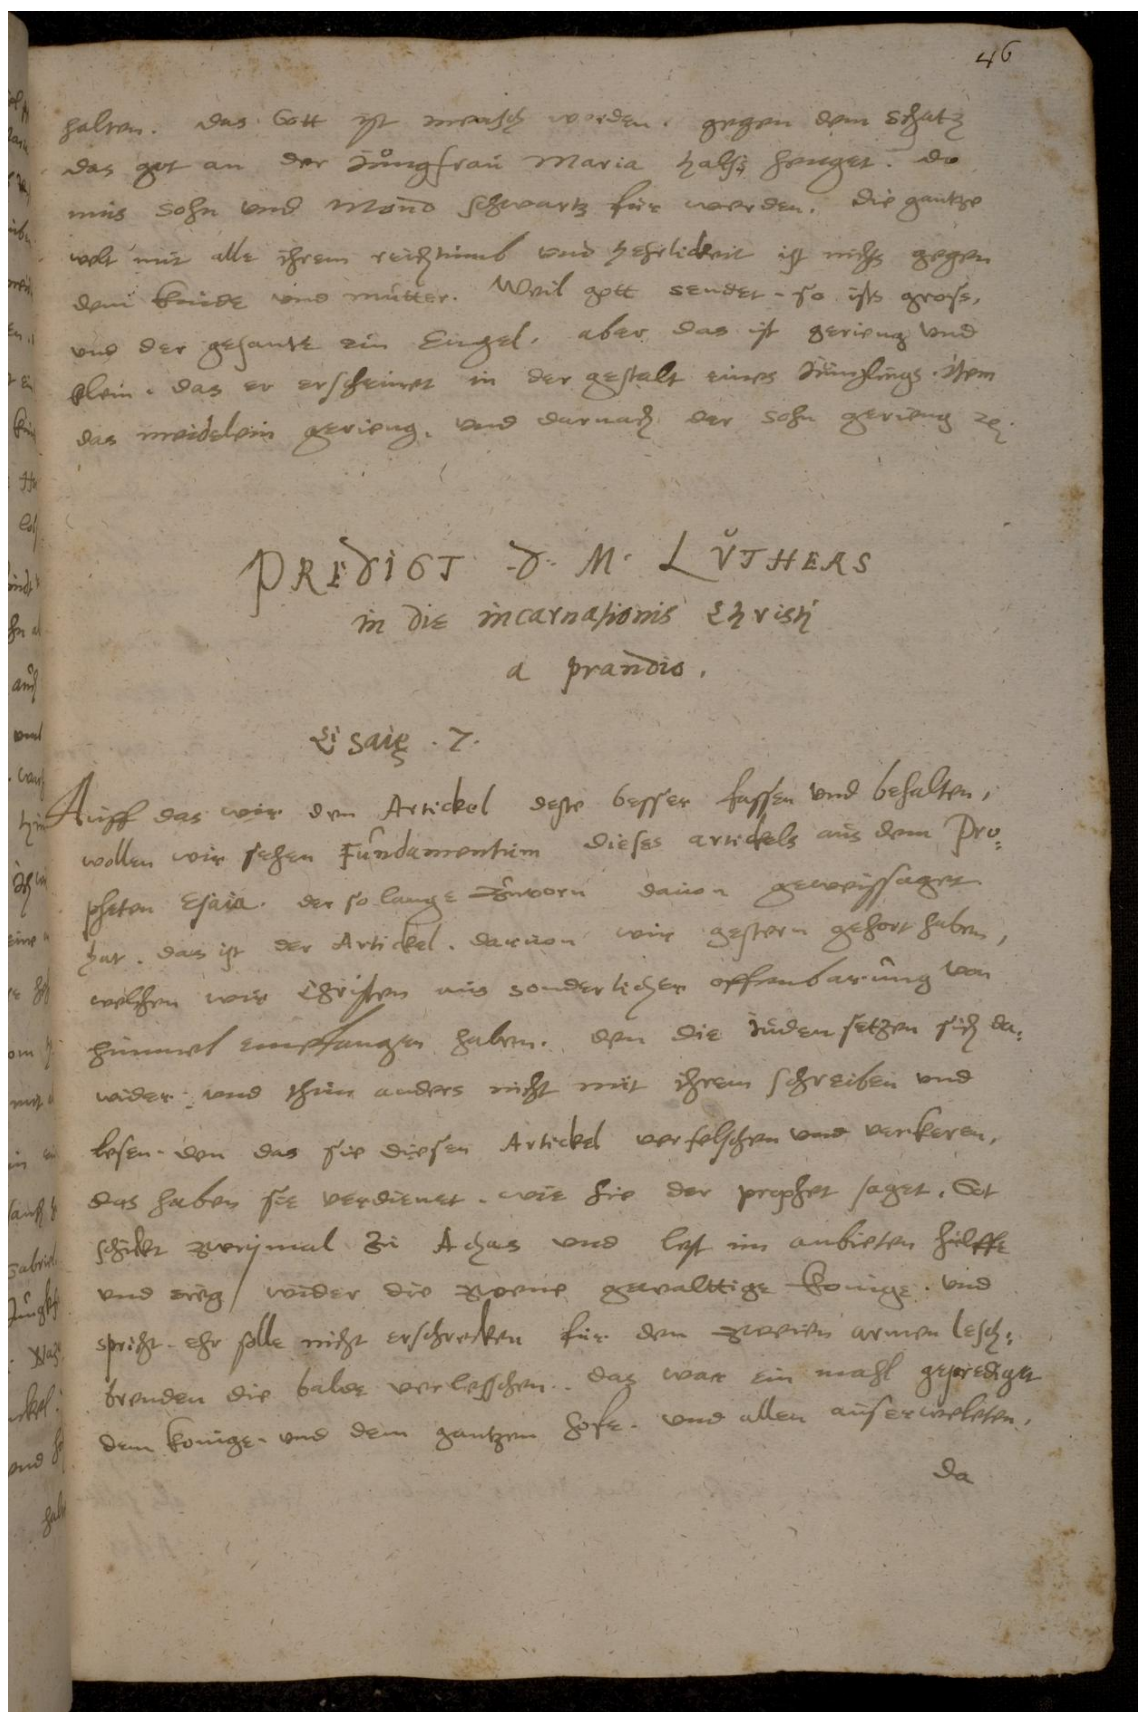 46
halten. das Gott ist mensch worden. gegen dem schatz
das got an der Jungfrau Maria halß henget. do
mus Sohn und Mond schwartz für werden. die gantze
welt mit alle ihrem reichtumb und hehrlickeit ist nichts gegen
dem kinde und mutter. Weil gott sendet. so ists gross,
und der gesante ein Engel. aber das ist gering und
klein. das er erscheinet in der gestalt eines Jünglings. Item
das meidelein gering. und darnach der sohn gering ꝛc.
PREDIGT D. M. LUTHERS
in die incarnationis Christi
a prandio.
Esaię .7.
Auff das wir den Artickel deste besser fassen und behalten,
wollen wir sehen Fundamentum dieses artickels aus dem Pro:
pheten Esaia. der so lange zuvorn davon geweissaget
hat. das ist der Artickel. darvon wir gestern gehort haben,
welchen wir Christen aus sonderlicher offenbarung von
himmel empfangen haben. den die Juden setzen sich da:
wider. und thun anders nicht mit ihrem schreiben und
lesen. den das sie diesen Artickel verfelschen und verkeren,
das haben sie verdienet. wie hie der prophet saget. Got
schickt zweymal zu Achas und lest im anbieten hülffe
und / wider die zweene gewalttige konige. und
spricht. ehr solle nicht erschrecken für den zweien armen lesch:
brenden die balde verlesschen. das war ein mahl geprediget
dem konige. und dem gantzen hofe. und allen auserweleten.
da